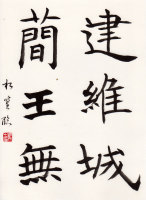 建維城
簡王無